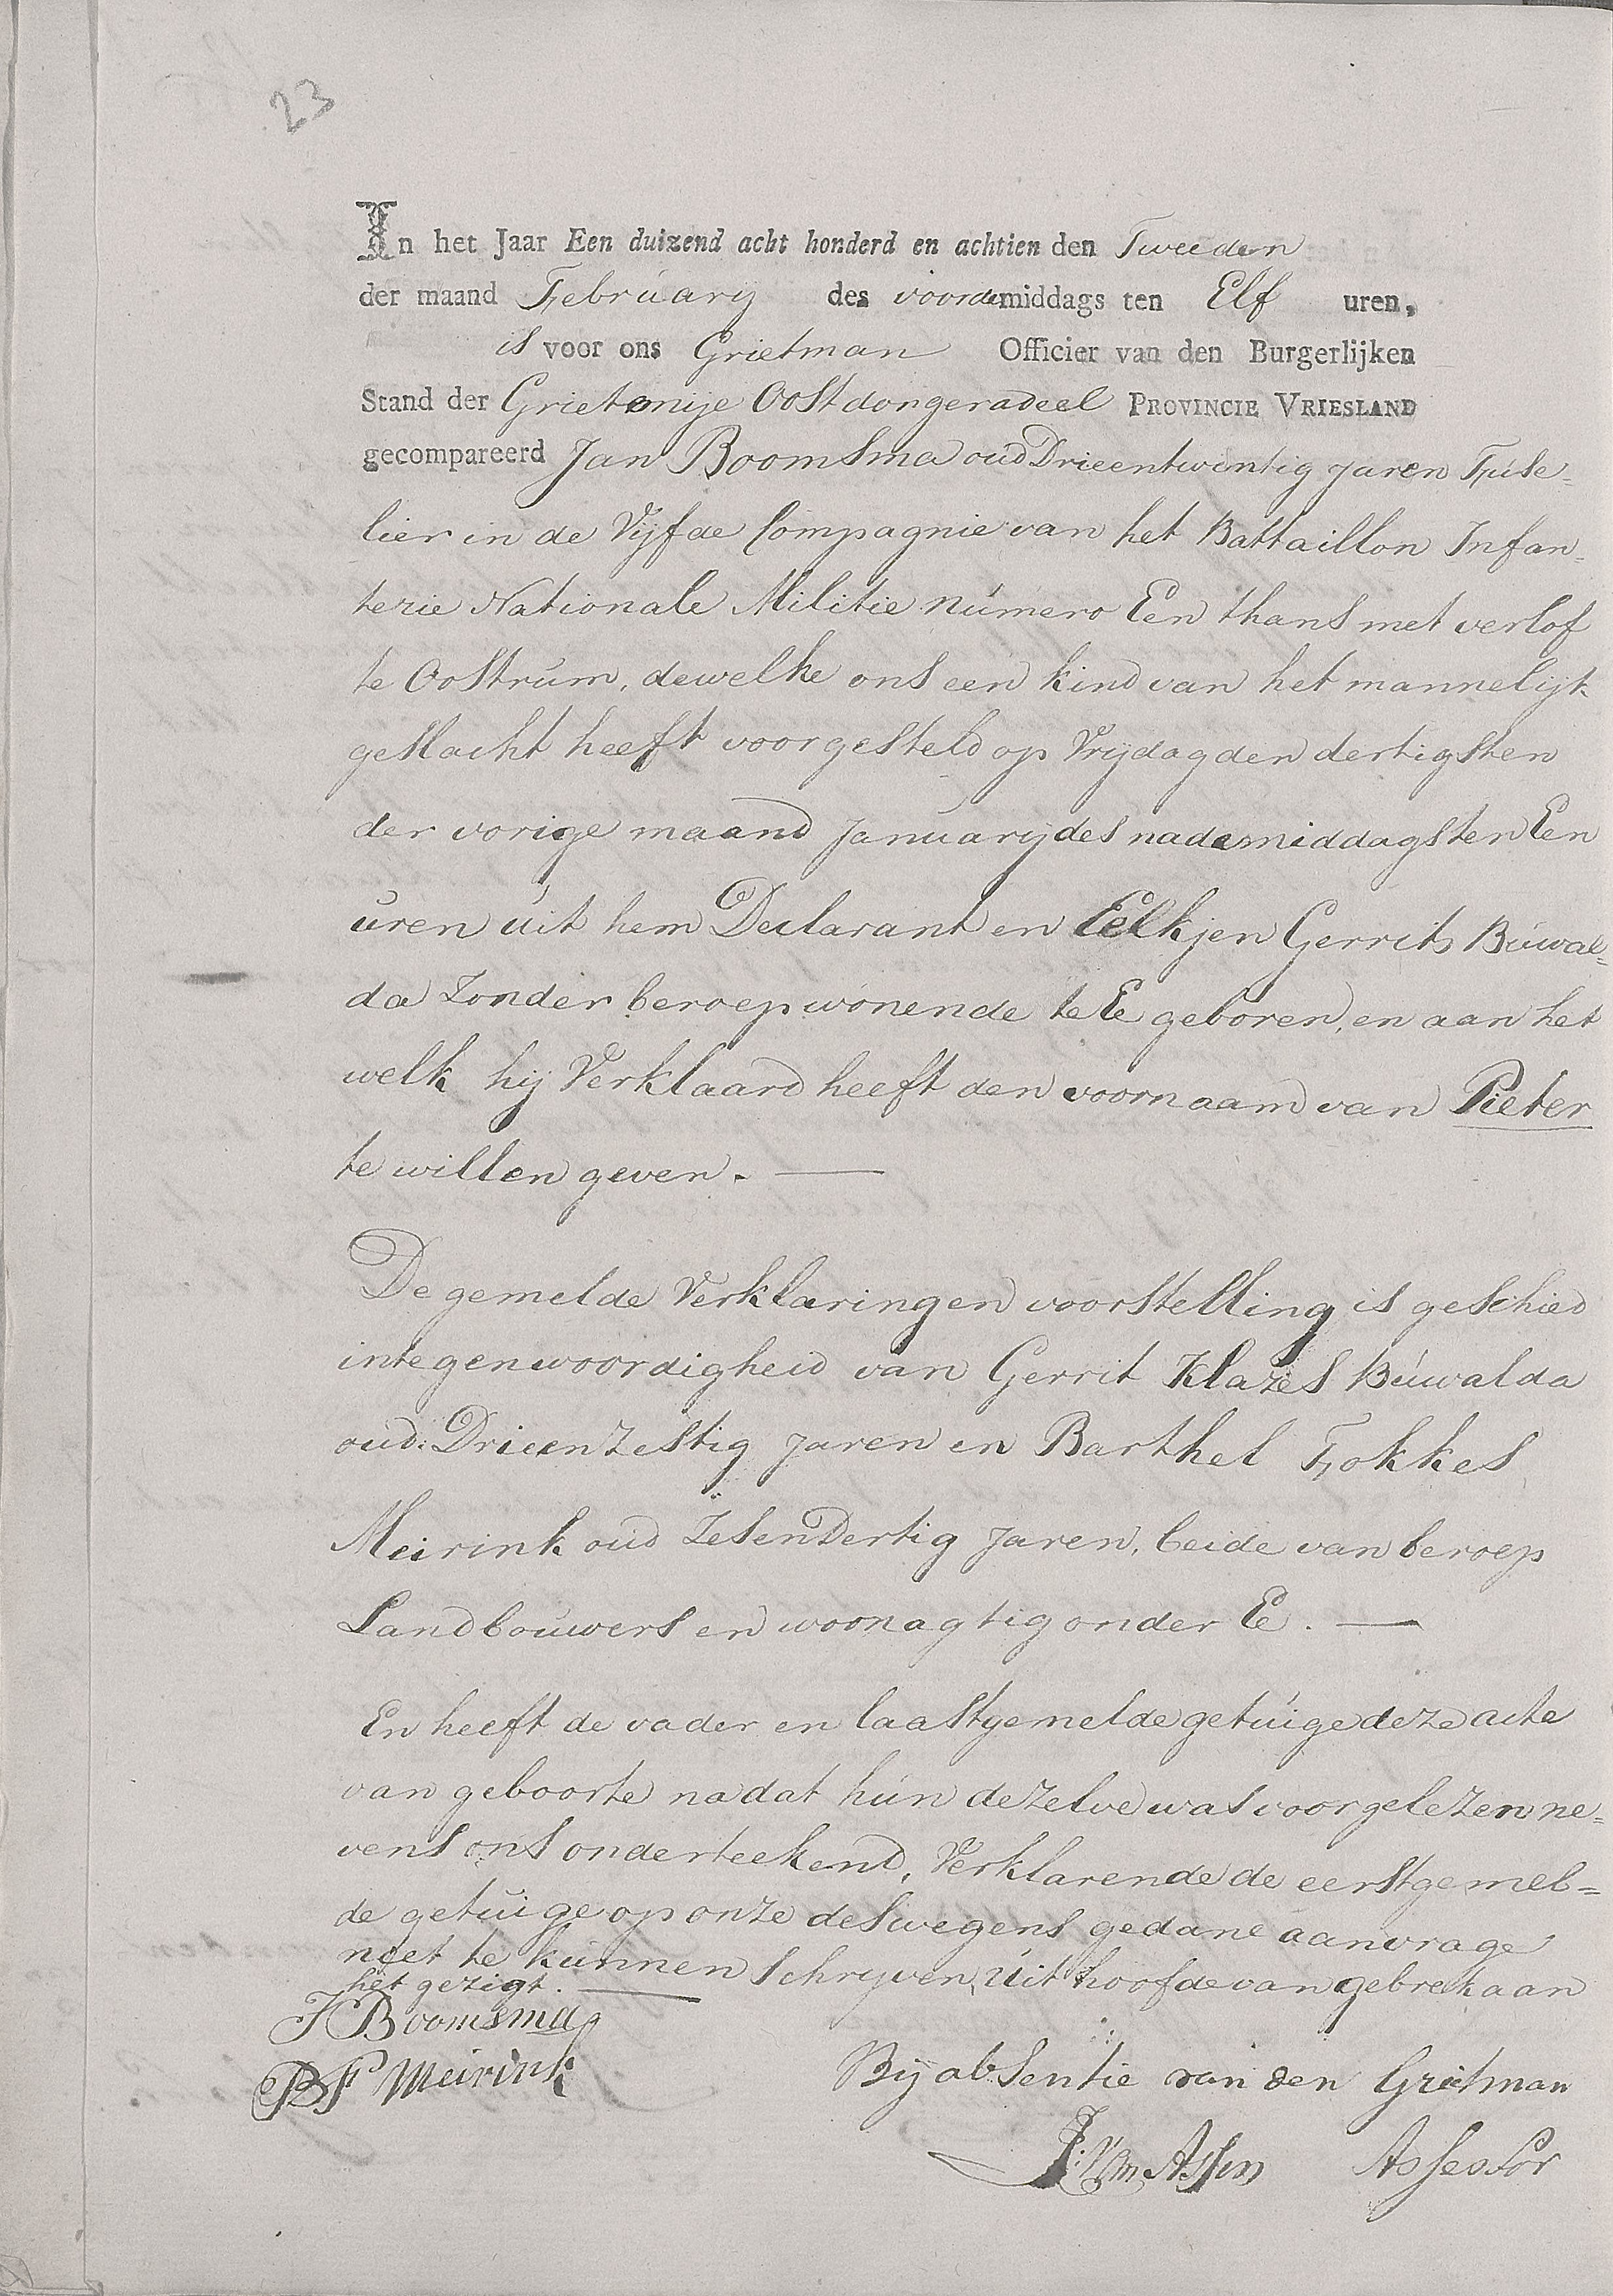 23
In het Jaar Een duizend acht honderd en achtien den Tweeden
der maand February des voordemiddags ten Elf uren,
is voor ons Grietman Officier van den Burgerlijken
Stand der Grietenije Oostdongeradeel PROVINCIE VRIESLAND
gecompareerd Jan Boomsma oud Drieentwintig jaren Fuse=
lier in de Vijfde Compagnie van het Battaillon Infan=
terie Nationale Militie número Een thans met verlof
te Oostrum, dewelke ons een kind van het mannelijk
geslacht heeft voorgesteld op Vrijdag den dertigsten
der vorige maand January des nademiddags ten Een
uren uit hem Declarant en Eelkjen Gerrits Buwal=
da zonder beroep wonende te Ee geboren, en aan het
welk hij Verklaard heeft den voornaam van Pieter
te willen geven. —
De gemelde Verklaring en voorstelling is geschied
in tegenwoordigheid van Gerrit Klazes Buwalda
oud Drieenzestig jaren en Barthel Fokkes
Meirink oud ZesenDertig Jaren, beide van beroep
Landbouwers en woonagtig onder Ee. —
En heeft de vader en laastgemelde getuige deze acte
van geboorte na dat hun dezelve was voorgelezen ne=
vens ons onderteekend, Verklarende de eerstgemel=
de getuige op onze deswegens gedane aanvrage
niet te kunnen schryven, uit hoofde van gebrek aan
het gezigt. —
J Boomsma
BF Meirink
Bij absentie van den Grietman
J: Vm Assen Assessor